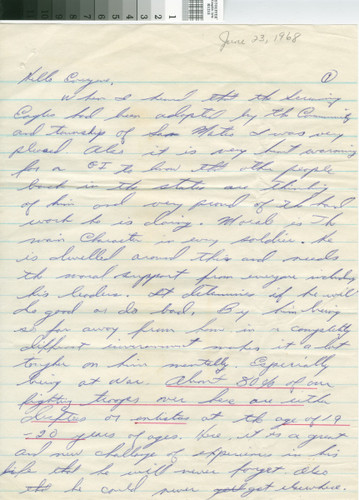 June 23, 1968
Hello Everyone, 1
When I heard that the Screaming
Eagles had been adopted by the Community
and township of San Mateo I was very
pleased. Also it is very heart warming
for a GI to know that other people
back in the states are thinking
of him and very proud of the hard
work he is doing. Morale is the
main Character in every soldier. he
is dwelled around this and needs
the moral support from everyone including
his leaders. It determines if he will
do good or do bad. By him being
so far away from home in a completely
different environment makes it a lot
tougher on him mentally. Especially
being at war. About 80% of our
fighting troops over here are either
draftees or enlistees at the age of 19
-20 years of ages. Here, it is a great
and new challenge of experiences in his
life that he will never forget. Also
that he could never get elsewhere.